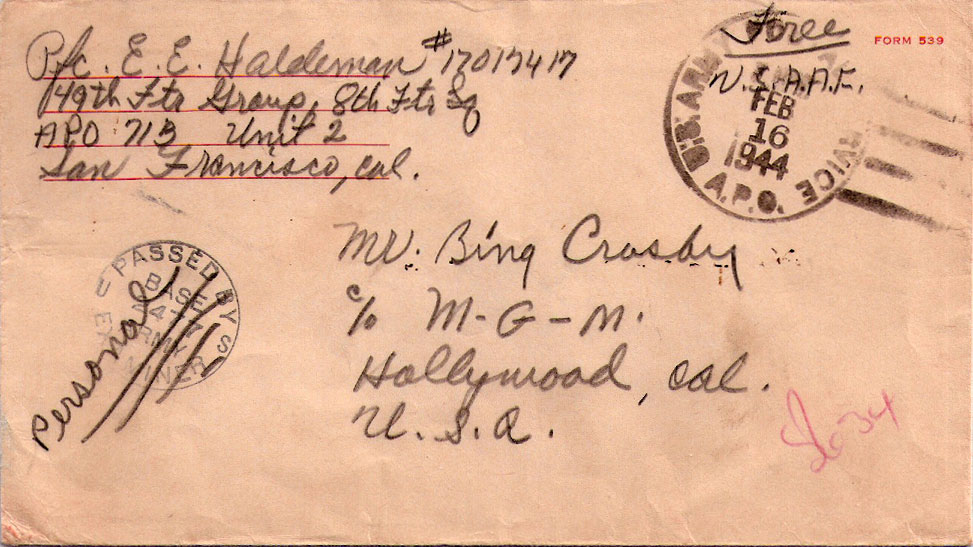 Pfc. E. E. Haldeman #17017417
49th Ftr Group, 8th Ftr Sq
APO 713 Unit 2
San Francisco, Cal.
Free
U.S.A.A.F.
FORM 539
U.S. ARMY
SERVICE
A.P.O.
FEB
16
1944
Mr. Bing Crosby
c/o M-G-M.
Hollywood, Cal.
U.S.A.
PASSED BY
BASE
ARMY
Personal